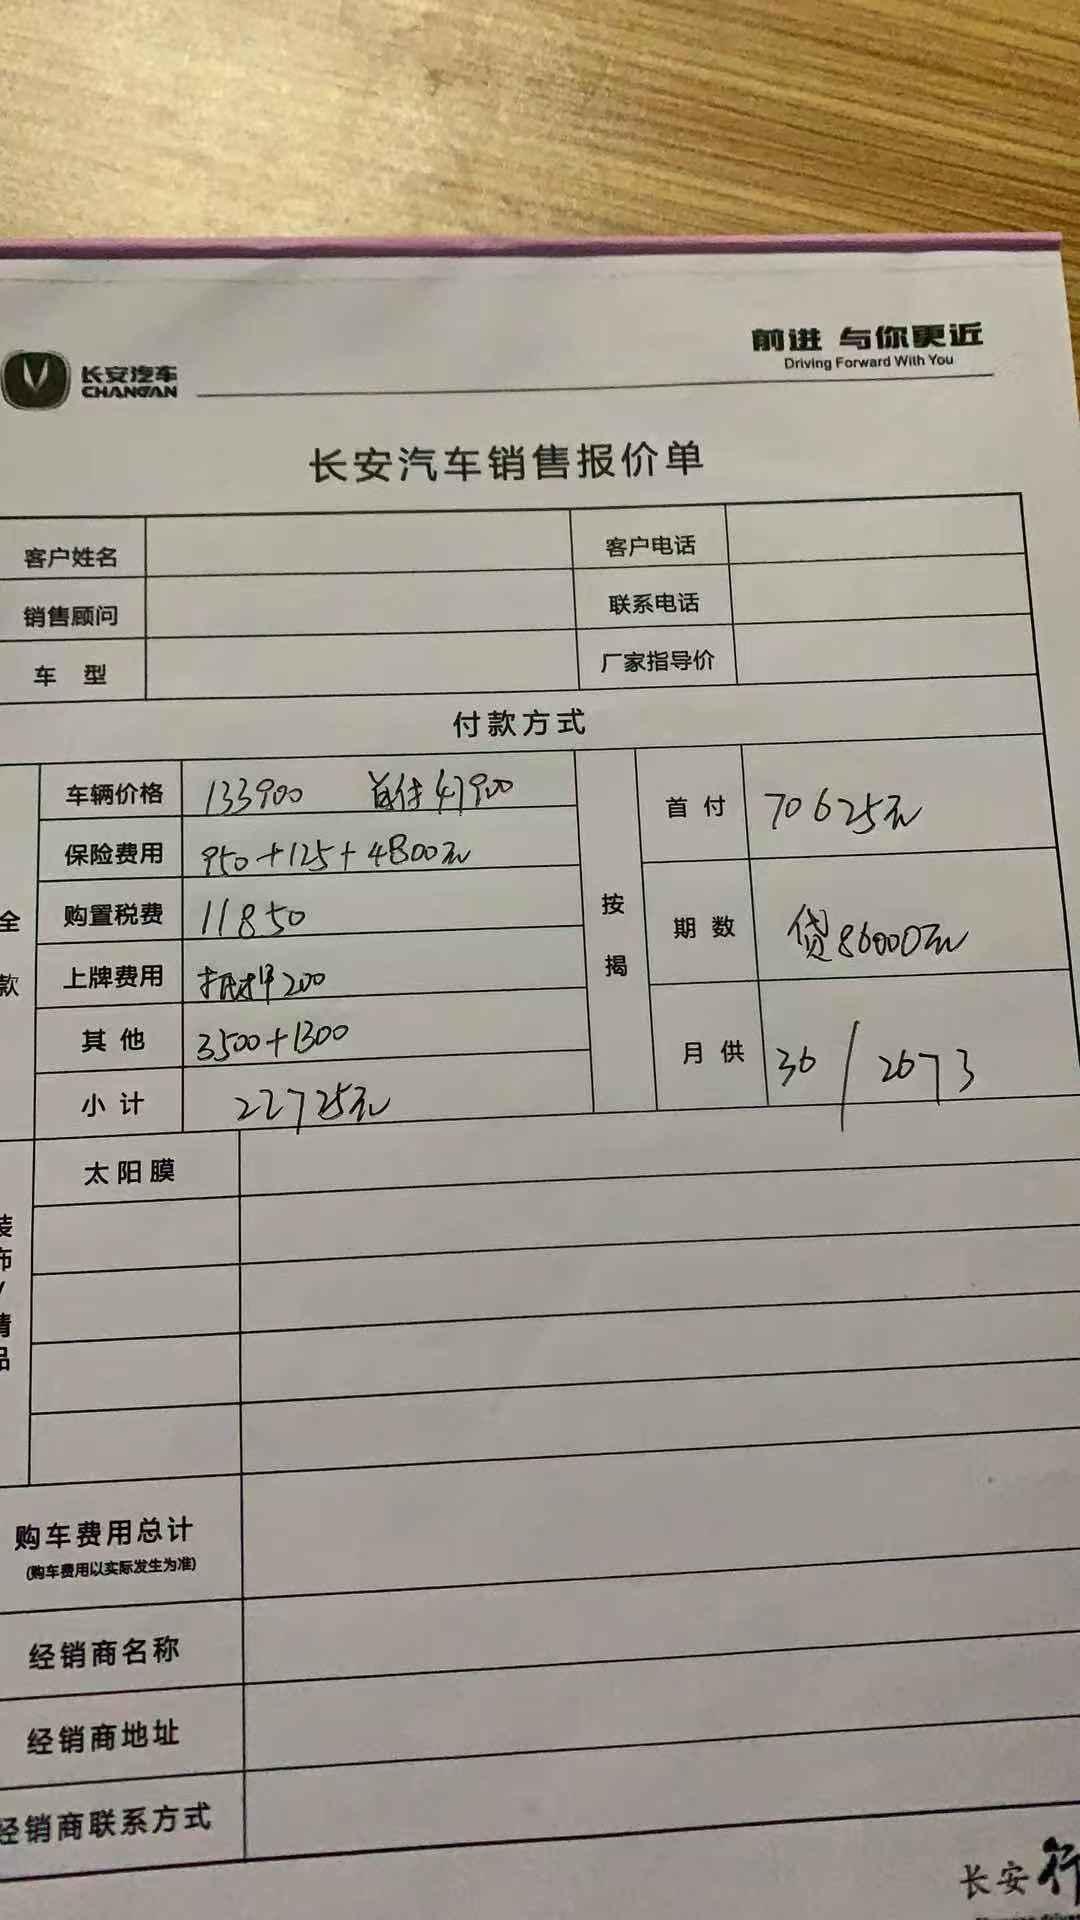 前进 与你更近
Driving Forward With You
长安汽车
CHANGAN
长安汽车销售报价单
客户姓名 客户电话
销售顾问 联系电话
车 型 厂家指导价
付款方式
全款
车辆价格 133900 首付47900
保险费用 950+125+4800元
购置税费 11850
上牌费用 抵押200
其 他 3500+1300
小 计 22725元
按揭
首 付 70625元
期 数 贷86000元
月 供 36 / 2673
装饰/精品
太阳膜
购车费用总计
(购车费用以实际发生为准)
经销商名称
经销商地址
经销商联系方式
长安行